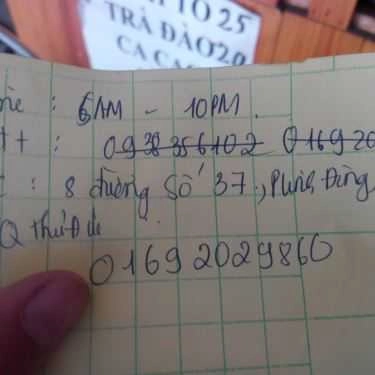 TO 25
TRÀ ĐÀO 20
CA CAO
: 6AM - 10PM.
: 0938356102 0169 20
: 8 đường số 37, Phường
Q Thủ Đức
01692029860